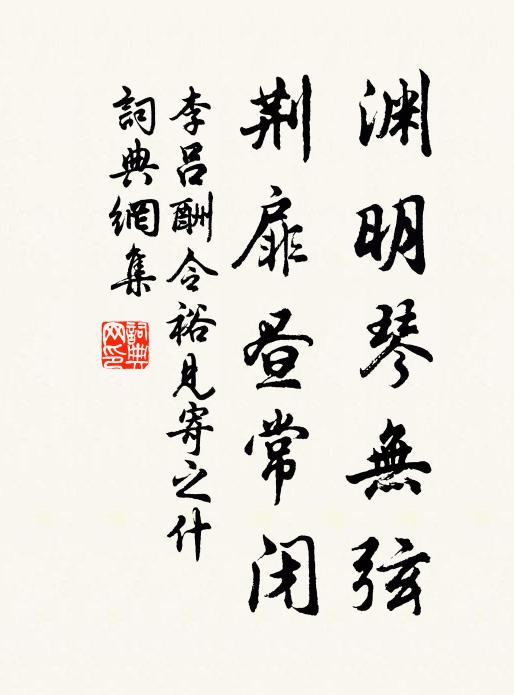 渊明琴無弦
荆扉昼常闭
李吕酬令裕見寄之什
詞典網集
詞典網印